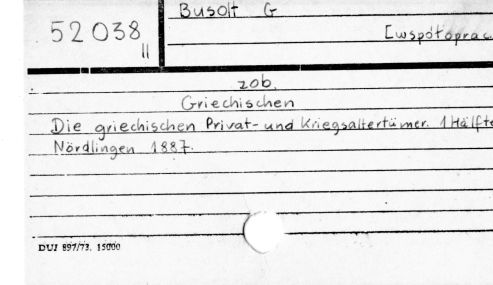 52038
II
Busolt G
[współoprac
zob.
Griechischen
Die griechischen Privat- und Kriegsaltertümer. 1 Hälfte
Nördlingen 1887.
DUJ 897/73. 15000